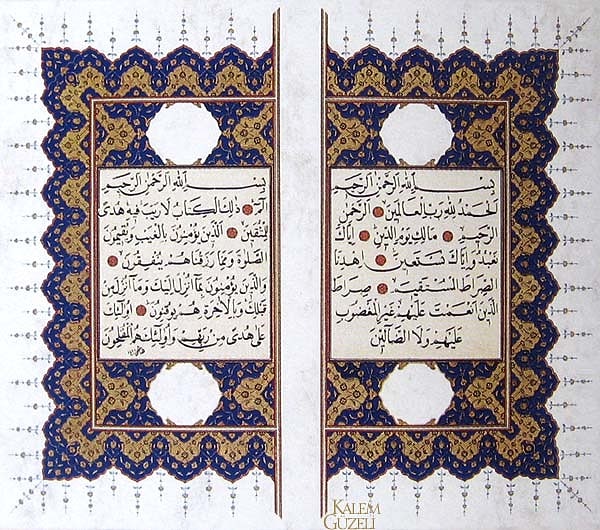 بسم الله الرحمن الرحيم
الحمد لله رب العالمين الرحمن
الرحيم مالك يوم الدين إياك
نعبد وإياك نستعين اهدنا
الصراط المستقيم صراط
الذين أنعمت عليهم غير المغضوب
عليهم ولا الضآلين
بسم الله الرحمن الرحيم
الم ذلك الكتاب لا ريب فيه هدى
للمتقين الذين يؤمنون بالغيب ويقيمون
الصلوة ومما رزقناهم ينفقون
والذين يؤمنون بمآ أنزل إليك ومآ أنزل من
قبلك وبالآخرة هم يوقنون أولئك
على هدى من ربهم وأولئك هم المفلحون
KALEM
GÜZELİ